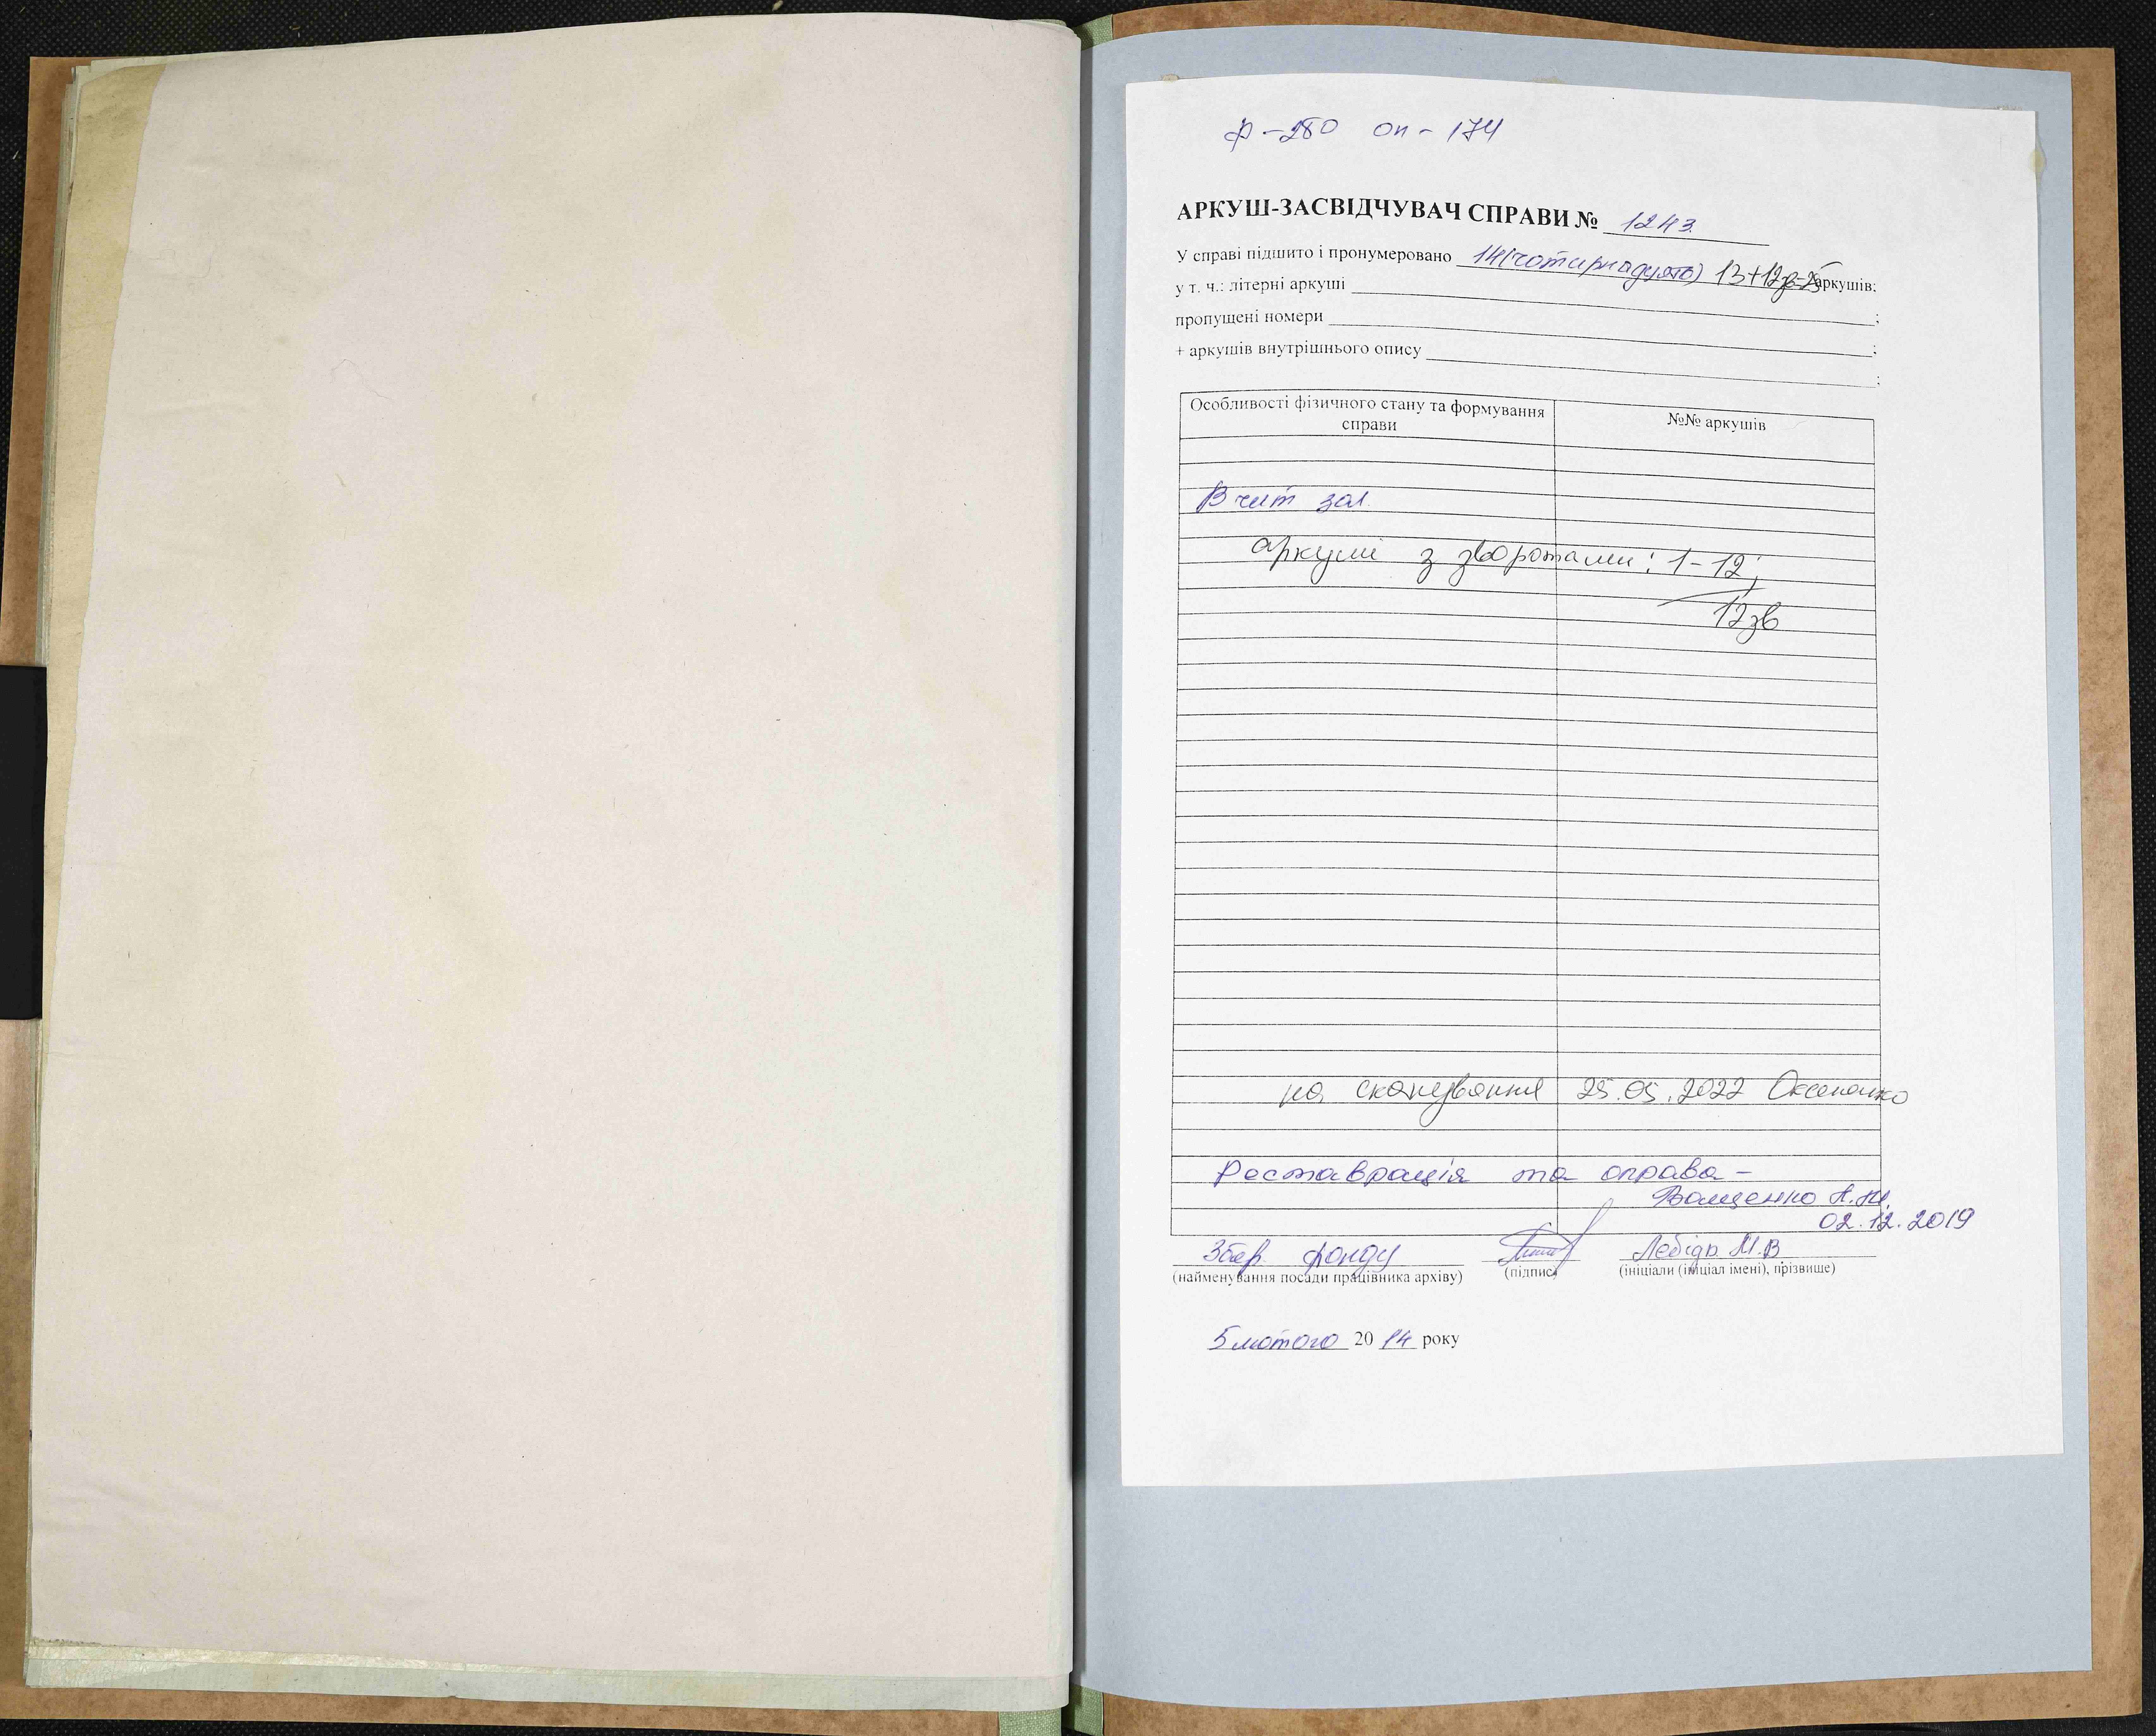 ф-280 оп-174
АРКУШ-ЗАСВІДЧУВАЧ СПРАВИ № 1243
У справі підшито і пронумеровано 14(чотирнадцять) 13+12зв=25 аркушів;
у т. ч.: літерні аркуші ;
пропущені номери ;
+ аркушів внутрішнього опису ;
Особливості фізичного стану та формування справи
№№ аркушів
В чит зал.
аркуші з зворотами: 1-12;
12зв
на сканування 25.05.2022
Реставрація та оправа -
Ващенко
02.12.2019
Збер. фонду Лебідь М.В
(найменування посади працівника архіву) (підпис) (ініціали (ініціал імені), прізвище)
5 лютого 2014 року